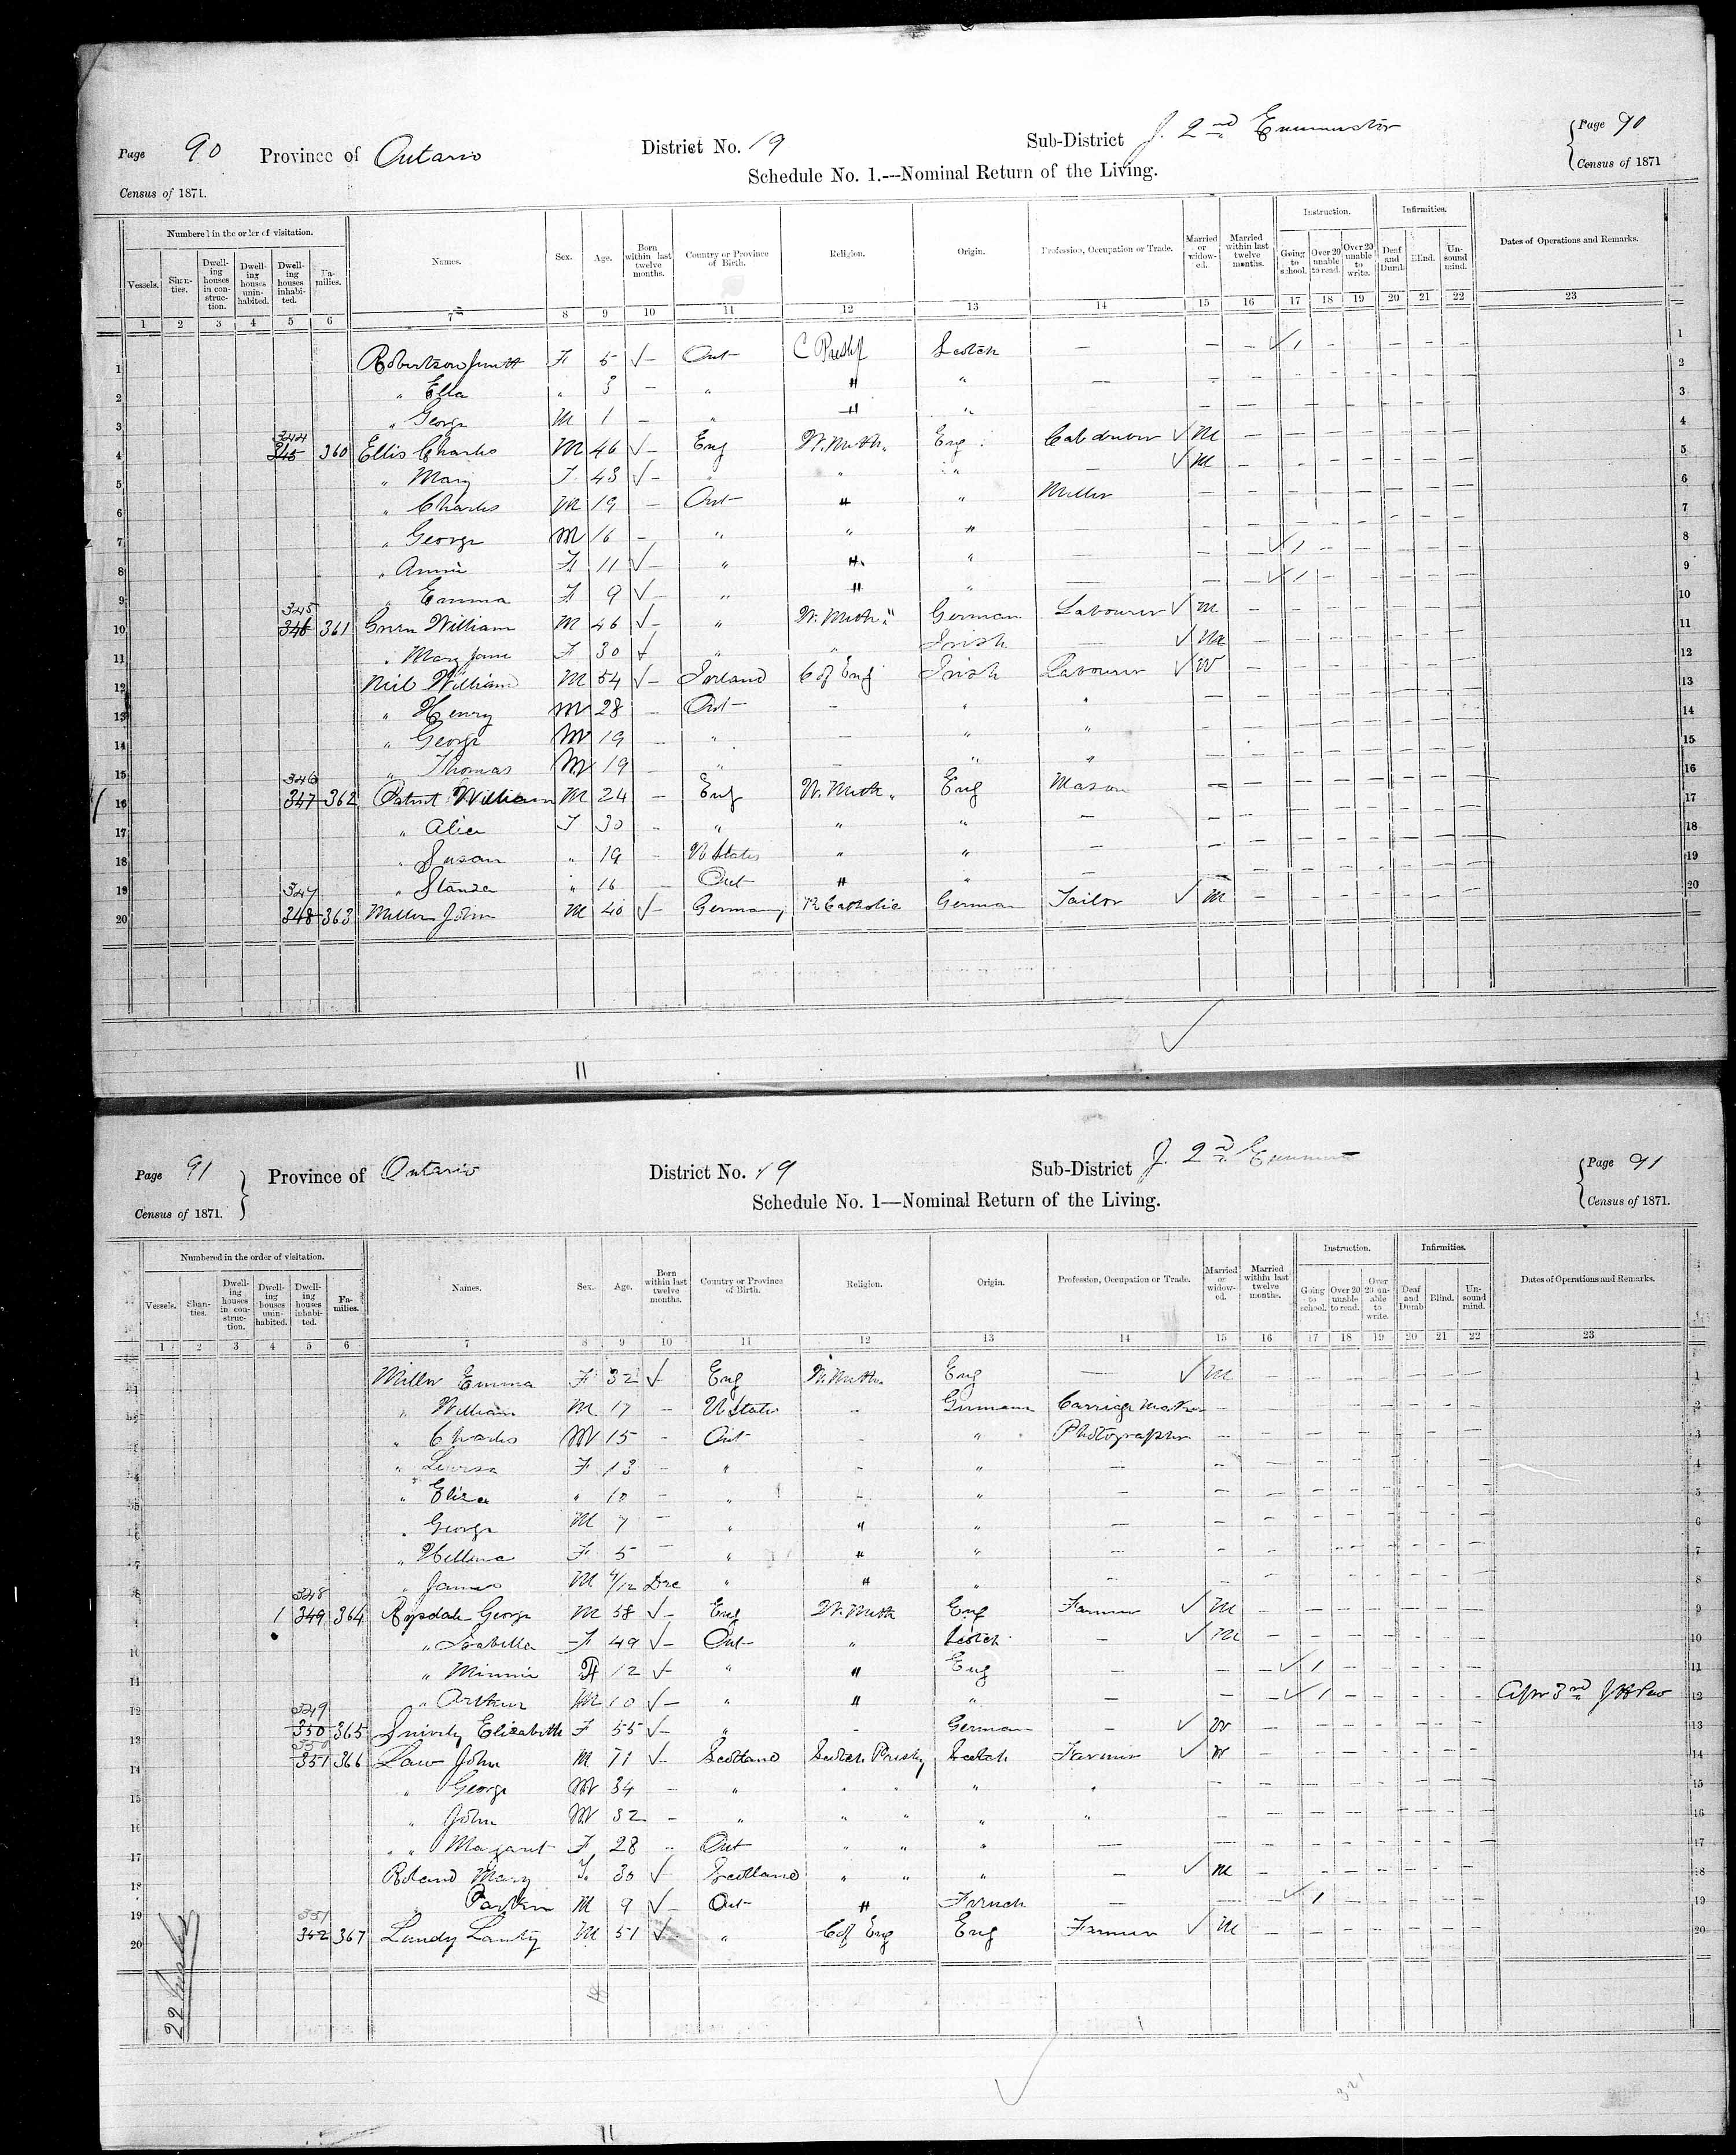 Page 90 Province of Ontario District No. 19 Sub-District J. 2nd Enumerator Page 90
Census of 1871. Schedule No. 1.---Nominal Return of the Living. Census of 1871
Numbered in the order of visitation. Names. Sex. Age. Born within last twelve months. Country or Province of Birth. Religion. Origin. Profession, Occupation or Trade. Married or widow-ed. Married within last twelve months. Instruction. Infirmities. Dates of Operations and Remarks.
Vessels. Shan-ties. Dwell-ing houses in con-struc-tion. Dwell-ing houses unin-habited. Dwell-ing houses inhabi-ted. Fa-milies. Going to school. Over 20 unable to read. Over 20 unable to write. Deaf and Dumb. Blind. Un-sound mind.
1 2 3 4 5 6 7 8 9 10 11 12 13 14 15 16 17 18 19 20 21 22 23
1 Robertson F 5 – Ont – C Presby Scotch — — – 1 – – – – – 1
2 " Ella " 3 – " " " — 2
3 " George M 1 – " " " — 3
4 344 345 360 Ellis Charles M 46 – Eng W. Meth. Eng Cab driver M 4
5 " Mary F 43 – " " " — M 5
6 " Charles M 19 – Ont – " " Miller 6
7 " George M 16 – " " " 7
8 " Annie F 11 – " " " — 1 8
9 " Emma F 9 – " " " — 1 9
10 345 346 361 William M 46 – " W. Meth. " German Labourer M 10
11 " Mary Jane F 30 " " Irish — M 11
12 Neil William M 54 – Ireland C of Eng Irish Labourer W 12
13 " Henry M 28 – Ont – – " " 13
14 " George M 19 – " – " " 14
15 " Thomas M 19 – " – " " 15
16 346 347 362 William M 24 – Eng W. Meth. Eng Mason – 16
17 " Alice F 30 – " " " – 17
18 " Susan " 19 – U States " " – 18
19 " " 16 – Ont " " – 19
20 347 348 363 Miller John M 40 – Germany R Catholic German Tailor M 20
Page 91 Province of Ontario District No. 19 Sub-District J. 2nd Page 91
Census of 1871. Schedule No. 1—Nominal Return of the Living. Census of 1871.
Numbered in the order of visitation. Names. Sex. Age. Born within last twelve months. Country or Province of Birth. Religion. Origin. Profession, Occupation or Trade. Married or widow-ed. Married within last twelve months. Instruction. Infirmities. Dates of Operations and Remarks.
Vessels. Shan-ties. Dwell-ing houses in con-struc-tion. Dwell-ing houses unin-habited. Dwell-ing houses inhabi-ted. Fa-milies. Going to school. Over 20 unable to read. Over 20 un-able to write. Deaf and Dumb Blind. Un-sound mind.
1 2 3 4 5 6 7 8 9 10 11 12 13 14 15 16 17 18 19 20 21 22 23
1 Miller Emma F 32 Eng W. Meth. Eng — M 1
2 " William M 17 – U States – German Carriage Maker 2
3 " Charles M 15 – Ont – " Photographer 3
4 " Louisa F 13 – " – " — 4
5 " Eliza " 10 – " – " — 5
6 " George M 7 – " " " — 6
7 " Hellena F 5 – " " " — 7
8 " James M 4/12 Dec " " " – 8
9 1 348 349 364 George M 58 – Eng W. Meth Eng Farmer M 9
10 " Isabella F 49 – Ont – " Scotch – M 10
11 " Minnie F 12 – " " Eng – 1 11
12 " Arthur M 10 – " " " – 1 Apr 3rd 12
13 349 350 365 Snively Elizabeth F 55 – " – German – W 13
14 350 351 366 Law John M 71 – Scotland Scotch Presby Scotch Farmer 14
15 " George M 34 – " " " " " 15
16 " John M 32 – " " " " " 16
17 " Margaret F 28 – Ont " " " — 17
18 Roland Mary F. 30 Scotland " " " – M 18
19 M 9 – Ont – " French — 1 19
20 351 352 367 Lundy Lanty M 51 – " C of Eng Eng Farmer M 20